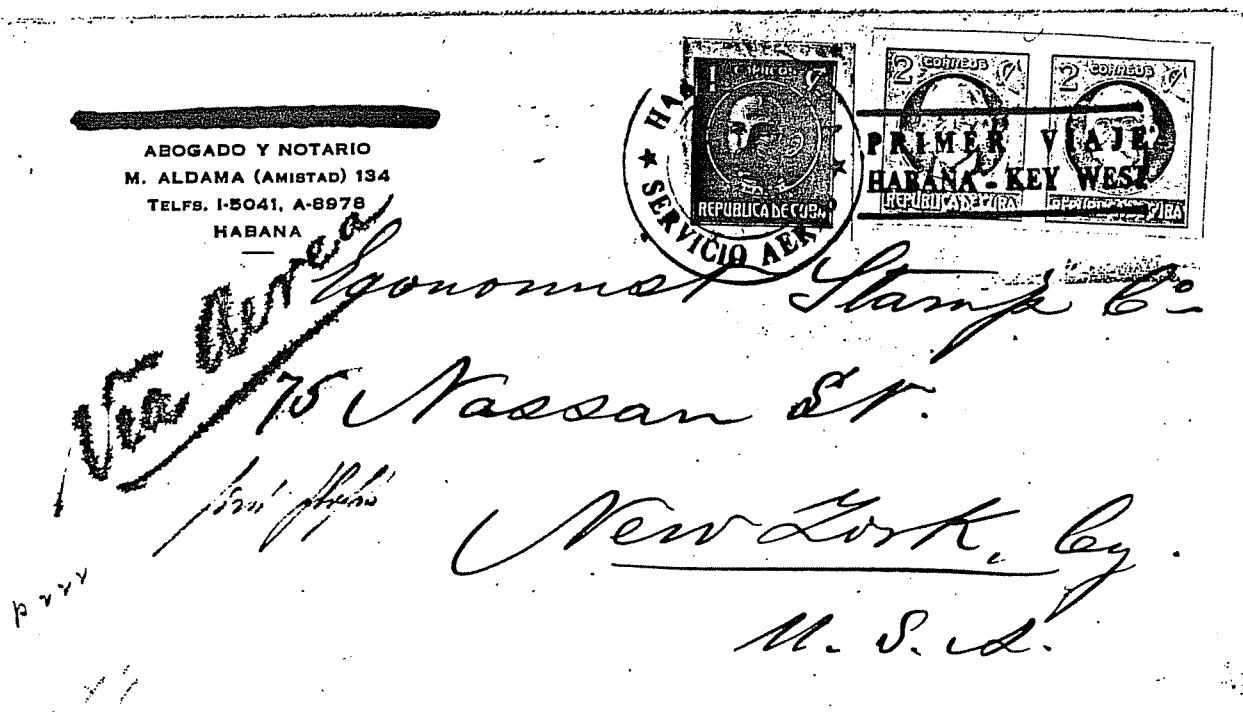 ABOGADO Y NOTARIO
M. ALDAMA (AMISTAD) 134
TELFS. I-5041, A-8978
HABANA
1
REPUBLICA DE CUBA
2 CORREOS
REPUBLICA DE CUBA
2 CORREOS
REPUBLICA DE CUBA
SERVICIO
PRIMER VIAJE
HABANA - KEY WEST
Via Aerea
Egonomist Stamp Co
75 Nassan St.
New York, Cy.
U. S. A.